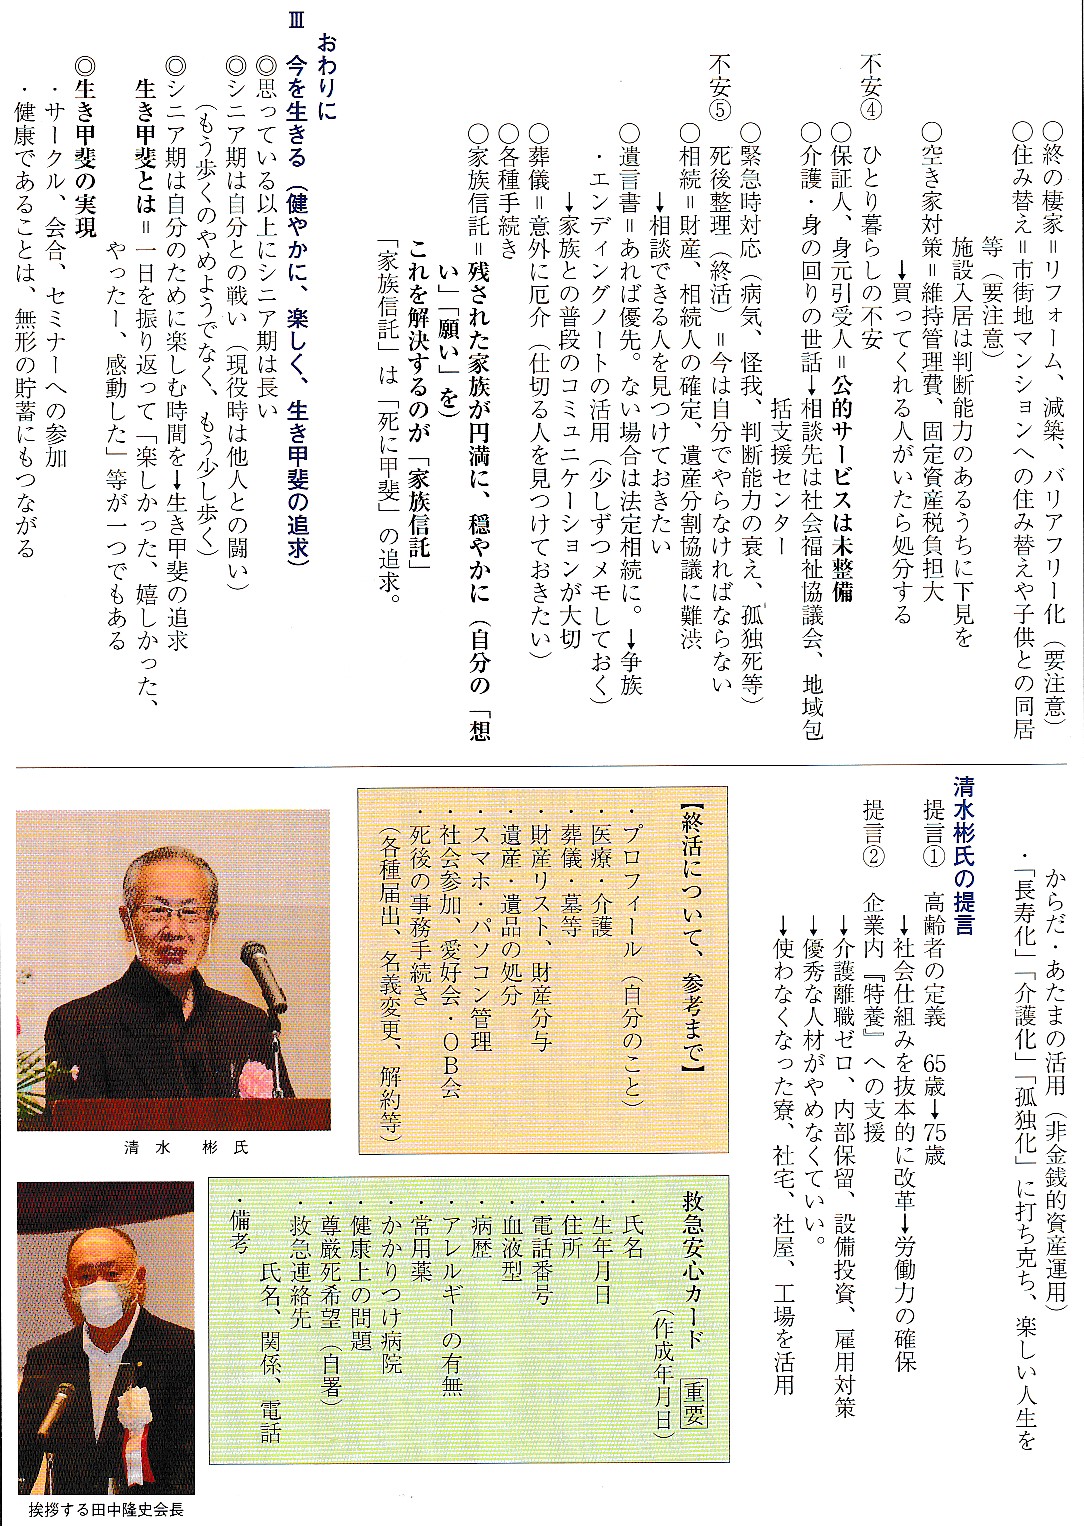 ○終の棲家＝リフォーム、減築、バリアフリー化（要注意）
○住み替え＝市街地マンションへの住み替えや子供との同居
等（要注意）
施設入居は判断能力のあるうちに下見を
○空き家対策＝維持管理費、固定資産税負担大
→買ってくれる人がいたら処分する
不安④　ひとり暮らしの不安
○保証人、身元引受人＝公的サービスは未整備
○介護・身の回りの世話→相談先は社会福祉協議会、地域包
括支援センター
○緊急時対応（病気、怪我、判断能力の衰え、孤独死等）
不安⑤　死後整理（終活）＝今は自分でやらなければならない
○相続＝財産、相続人の確定、遺産分割協議に難渋
→相談できる人を見つけておきたい
○遺言書＝あれば優先。ない場合は法定相続に。→争族
・エンディングノートの活用（少しずつメモしておく）
→家族との普段のコミュニケーションが大切
○葬儀＝意外に厄介（仕切る人を見つけておきたい）
○各種手続き
○家族信託＝残された家族が円満に、穏やかに（自分の「想
い」「願い」を）
これを解決するのが「家族信託」
「家族信託」は「死に甲斐」の追求。
おわりに
Ⅲ　今を生きる（健やかに、楽しく、生き甲斐の追求）
◎思っている以上にシニア期は長い
◎シニア期は自分との戦い（現役時は他人との闘い）
（もう歩くのやめようでなく、もう少し歩く）
◎シニア期は自分のために楽しむ時間を→生き甲斐の追求
生き甲斐とは＝一日を振り返って「楽しかった、嬉しかった、
やったー、感動した」等が一つでもある
◎生き甲斐の実現
・サークル、会合、セミナーへの参加
・健康であることは、無形の貯蓄にもつながる
からだ・あたまの活用（非金銭的資産運用）
・「長寿化」「介護化」「孤独化」に打ち克ち、楽しい人生を
清水彬氏の提言
提言①　高齢者の定義　65歳→75歳
→社会仕組みを抜本的に改革→労働力の確保
提言②　企業内『特養』への支援
→介護離職ゼロ、内部保留、設備投資、雇用対策
→優秀な人材がやめなくていい。
→使わなくなった寮、社宅、社屋、工場を活用
【終活について、参考まで】
・プロフィール（自分のこと）
・医療・介護
・葬儀・墓等
・財産リスト、財産分与
・遺産・遺品の処分
・スマホ・パソコン管理
・社会参加、愛好会・ＯＢ会
・死後の事務手続き
（各種届出、名義変更、解約等）
救急安心カード　重要
（作成年月日）
・氏名
・生年月日
・住所
・電話番号
・血液型
・病歴
・アレルギーの有無
・常用薬
・かかりつけ病院
・健康上の問題
・尊厳死希望（自署）
・救急連絡先
氏名、関係、電話
・備考
清水　彬氏
挨拶する田中隆史会長